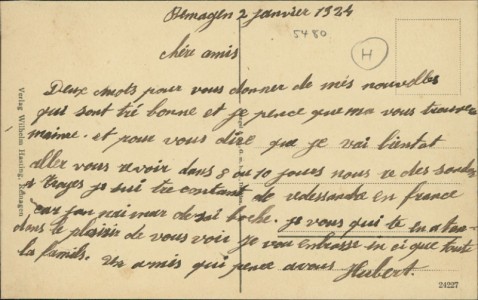 Remagen 2 janvier 1924
5480
H
chère amis
Deux mots pour vous donner de més nouvelles
qui sont tré bonne et je pence que ma vous trouve
maime. et pour vous dire que je vai bientot
aller vous revoir dans 8 ou 10 jours nous re des sandon
a Troyes je sui tre contant de redessandre en france
car jan nai mar de sai boche. je vous qui te en atan
dans te plaisir de vous voir je vou enbrasse in ci que toute
la famils. un amis qui pence a vous Hubert.
Verlag Wilhelm Hassing, Remagen
24227